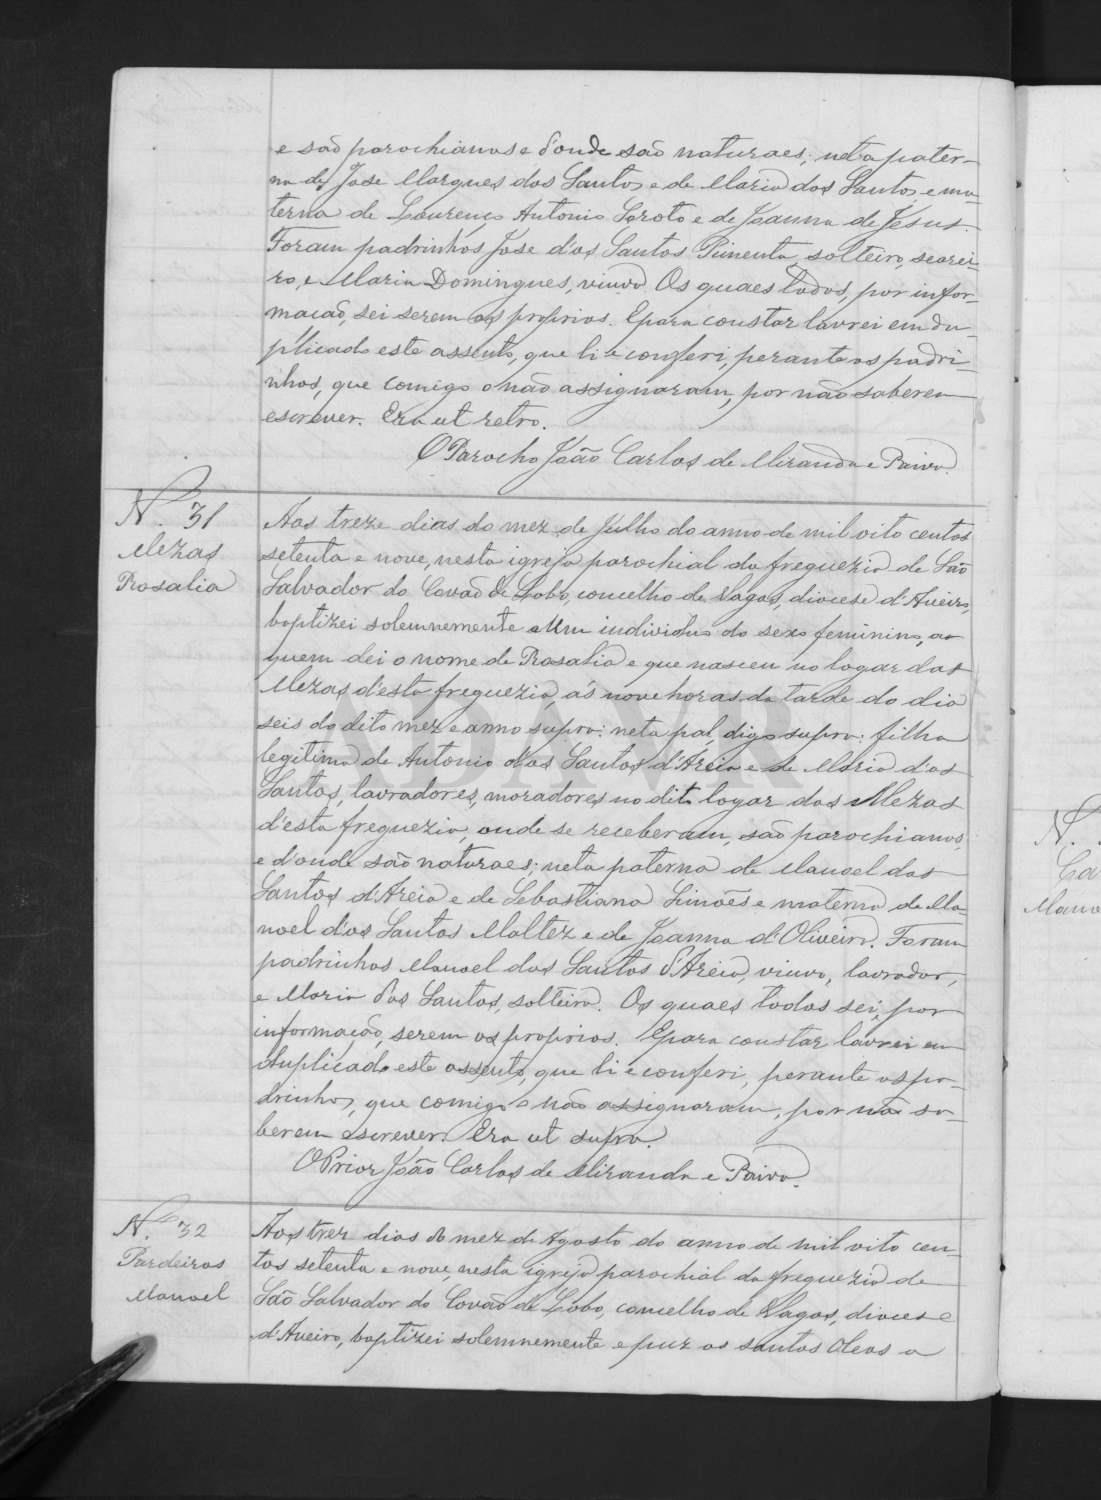 e são parochianos e d'onde são naturaes; neta pater-
na de José Marques dos Santos e de Maria dos Santos e ma-
terna de Lourenço Antonio Loroto e de Joanna de Jesus.
Foram padrinhos José dos Santos Pimenta, solteiro, searei-
ro, e Maria Domingues, viuva. Os quaes todos, por infor-
mação, sei serem os proprios. E para constar lavrei em du-
plicado este assento, que li e conferi, perante os padri-
nhos, que comigo o não assignaram, por não saberem
escrever. Era ut retro.
O Parocho João Carlos de Miranda e Paiva.
N.º 31
Mezas
Rosalia
Aos treze dias do mez de Julho do anno de mil oito centos
setenta e nove, nesta igreja parochial da freguezia de São
Salvador do Covão de Lobo, concelho de Vagos, diocese d'Aveiro,
baptizei solemnemente um individuo do sexo feminino, ao
quem dei o nome de Rosalia e que nasceu no logar das
Mezas d'esta freguezia, ás nove horas da tarde do dia
seis do dito mez e anno supra: neta pal, digo supra: filha
legitima de Antonio dos Santos d'Areia e de Maria dos
Santos, lavradores, moradores no dito logar das Mezas
d'esta freguezia, onde se receberam, são parochianos,
e d'onde são naturaes; neta paterna de Manoel dos
Santos d'Areia e de Sebastiana Simões e materna de Ma-
noel dos Santos Maltez e de Joanna d'Oliveira. Foram
padrinhos Manoel dos Santos d'Areia, viuvo, lavrador,
e Maria dos Santos, solteira. Os quaes todos sei, por
informação, serem os proprios. E para constar lavrei em
duplicado este assento, que li e conferi, perante os pa-
drinhos, que comigo o não assignaram, por não sa-
berem escrever. Era ut supra.
O Prior João Carlos de Miranda e Paiva.
N.º 32
Pardeiros
Manoel
Aos trez dias do mez de Agosto do anno de mil oito cen-
tos setenta e nove, nesta igreja parochial da freguezia de
São Salvador do Covão de Lobo, concelho de Vagos, diocese
d'Aveiro, baptizei solemnemente e puz os santos Oleos a
N.
Ca
Mano
ADAVR